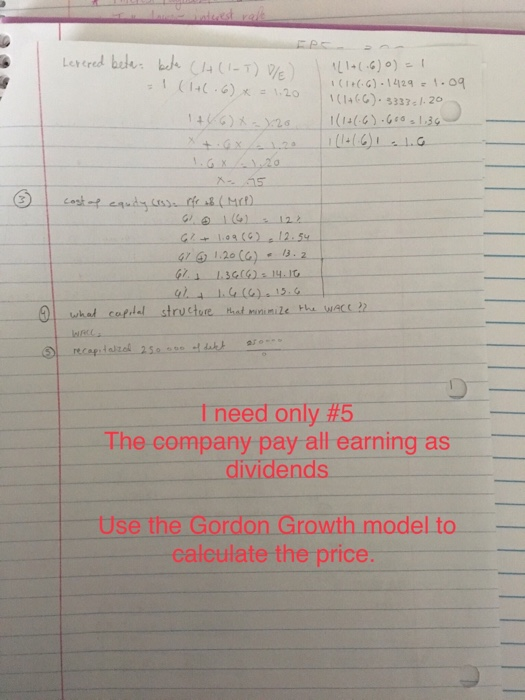 interest rate
Levered beta: beta (1+(1-T) D/E)
= 1 (1+(.6) x = 1.20
1+(.6)x = 1.20
x + .6x = 1.20
1.6x = 1.20
x = .75
1(1+(.6)0) = 1
1(1+(.6).1429 = 1.09
1(1+(.6).3333 = 1.20
1(1+(.6).600 = 1.36
1(1+(.6)1 = 1.6
③ cost of equity (rs)= rfr + B (MrP)
6% + 1(6) = 12%
6% + 1.09(6) = 12.54
6% + 1.20(6) = 13.2
6% + 1.36(6) = 14.16
6% + 1.6(6) = 15.6
④ what capital structure that minimize the WACC ??
WACC =
⑤ recapitalized 250 000 of debt
I need only #5
The company pay all earning as
dividends
Use the Gordon Growth model to
calculate the price.